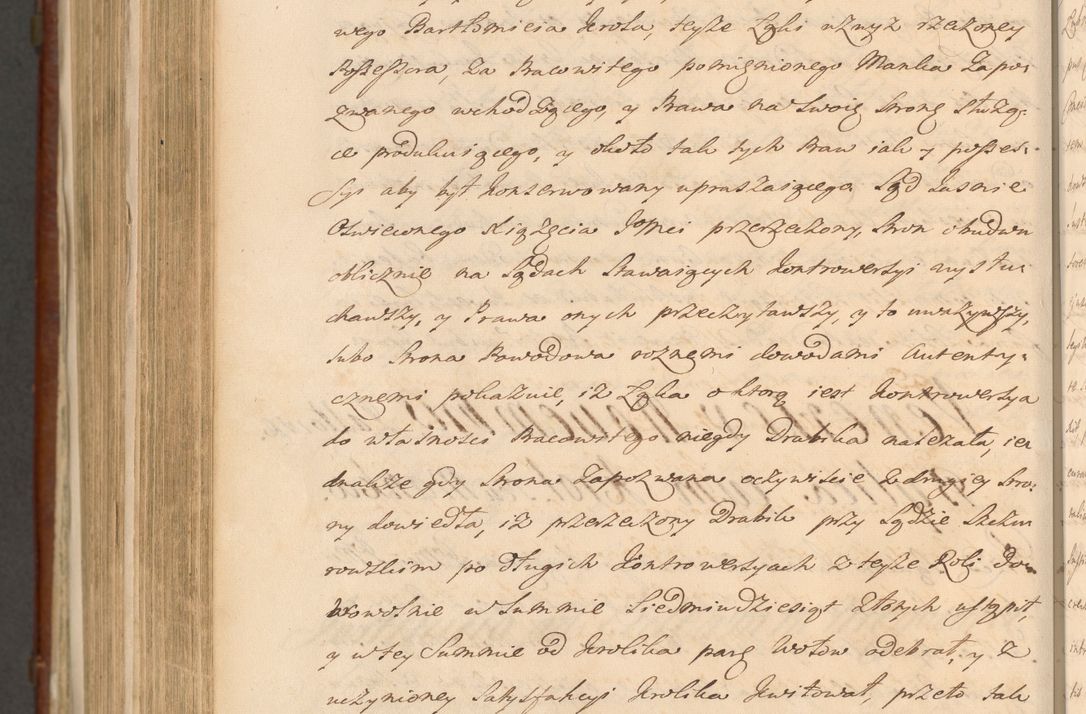 wego Bartłomieia Krola, teyże Zgli uznyz rzeczoney
Possessora, za Pracowitego pomienionego Manka Zapo-
zwanego wchodzącego, y Prawa na Swoię Stronę służą-
ce produkuiącego, y około tak tych Praw iak y posses-
syi aby był konserwowany upraszaiącego. Sąd Jasnie
Oświeconego Xiążęcia Jmci przerzeczony, Stron obudwu
oblicznie na Sądach Stawaiących Kontrowersyi wysłu-
chawszy, y Prawa onych przeczytawszy, y to uważywszy,
lubo Strona Powodowa roznemi dowodami Autenty-
cznemi pokazuie, iż Zgla o ktorą iest Kontrowersya
do własności Pracowitego niegdy Drabika należała, ie-
dnakże gdy Strona Zapozwana oczywiście z drugiey Stro-
ny dowiedła, iż przerzeczony Drabik przy Sądzie
po długich Kontrowersyach z teyże Roli Do-
browolnie w Summie Siedmiudziesiąt Złotych ustąpił,
y w tey Summie od Krolika parę Wołow odebrał, y z
uczynioney Satysfakcyi Krolika kwitował, przeto tak